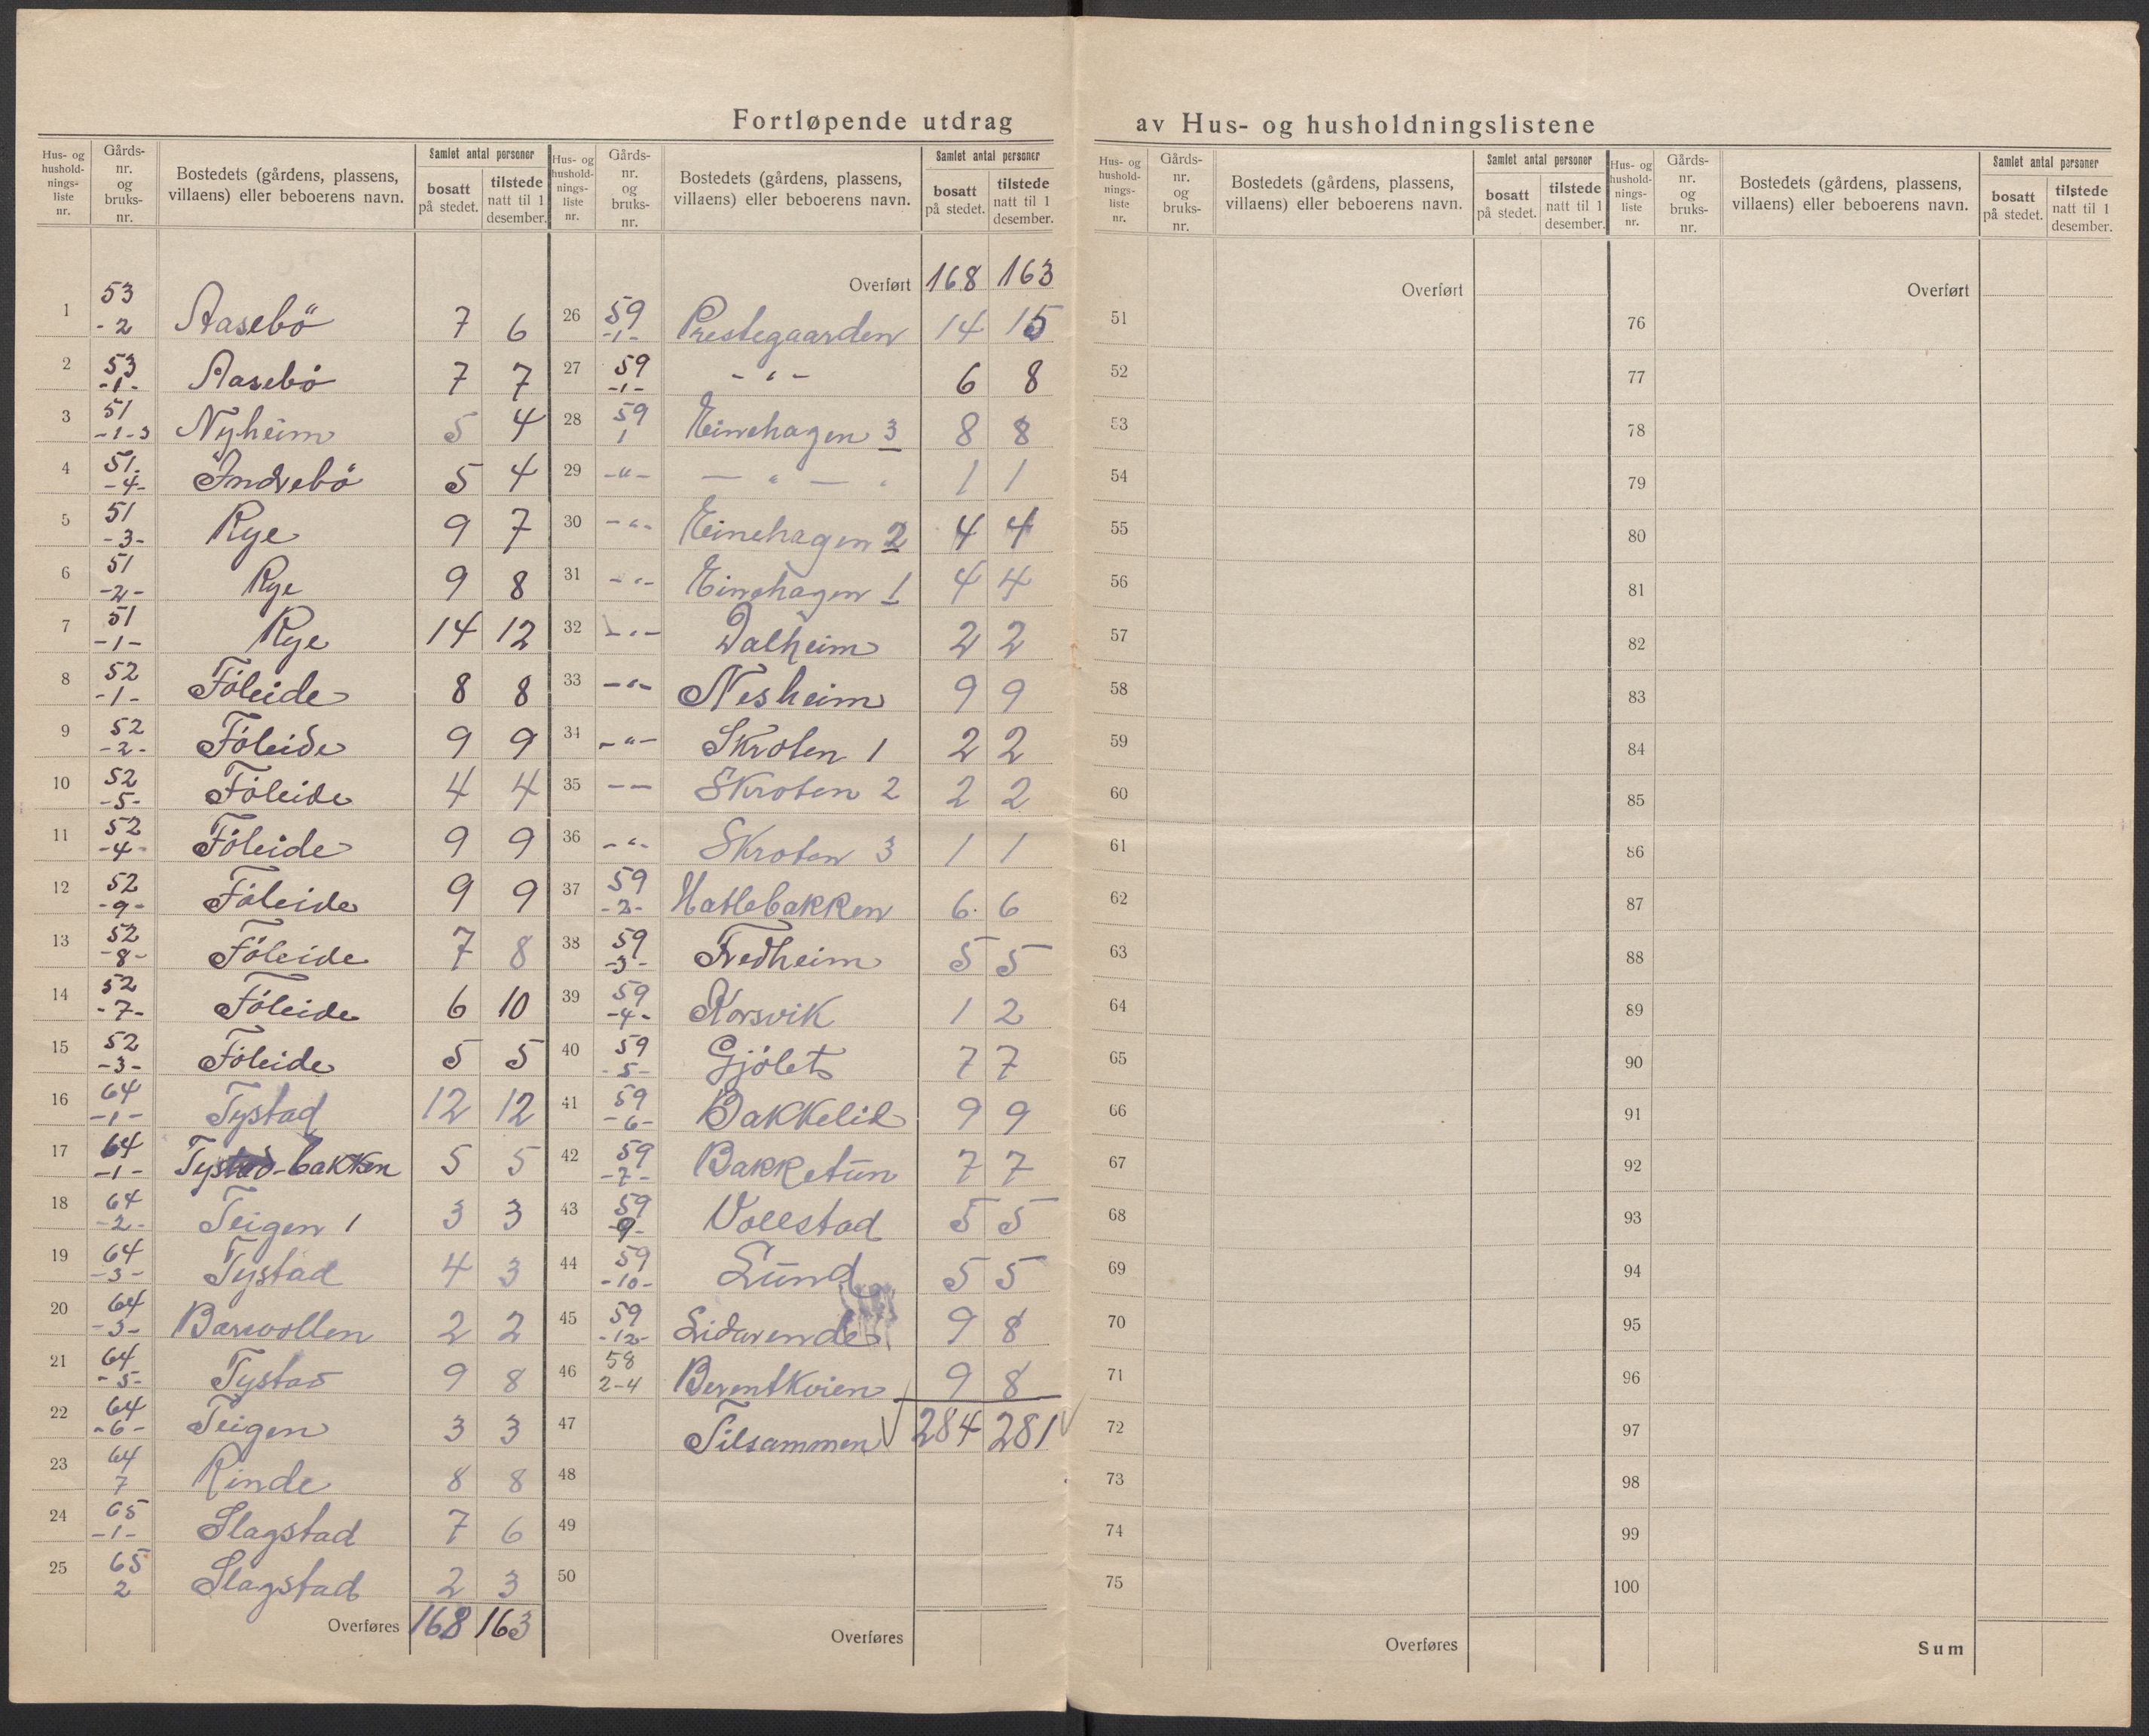 Fortløpende utdrag av Hus- og husholdningslistene
Hus- og hushold-nings-liste nr. | Gårds-nr. og bruks-nr. | Bostedets (gårdens, plassens, villaens) eller beboerens navn. | Samlet antal personer | bosatt på stedet. | tilstede natt til 1 desember.
1 53 -2 Aasebö 7 6
2 53 -1- Aasebö 7 7
3 51 -1-3 Nyheim 5 4
4 51. -4- Indrebö 5 4
5 51 -3- Rye 9 7
6 51 -2- Rye 9 8
7 51 -1- Rye 14 12
8 52 -1- Föleide 8 8
9 52 -2- Föleide 9 9
10 52 -5- Föleide 4 4
11 52 -4- Föleide 9 9
12 52 -9- Föleide 9 9
13 52 -8- Föleide 7 8
14 52 -7- Föleide 6 10
15 52 -3- Föleide 5 5
16 64 -1- Tystad 12 12
17 64 -1- Tystad-bakken 5 5
18 64 -2- Teigen 1 3 3
19 64 -3- Tystad 4 3
20 64 -3- Barevollen 2 2
21 64 -5- Tystad 9 8
22 64 -6- Teigen 3 3
23 64 7 Rinde 8 8
24 65 -1- Slagstad 7 6
25 65 2 Slagstad 2 3
Overføres 168 163
Hus- og hushold-nings-liste nr. | Gårds-nr. og bruks-nr. | Bostedets (gårdens, plassens, villaens) eller beboerens navn. | Samlet antal personer | bosatt på stedet. | tilstede natt til 1 desember.
Overført 168 163
26 59 -1- Prestegaarden 14 15
27 59 -1- -"- 6 8
28 59 1 Einehagen 3 8 8
29 -"- — " — " 1 1
30 -"- Einehagen 2 4 4
31 -"- Einehagen 1 4 4
32 -"- Dalheim 2 2
33 -"- Nesheim 9 9
34 -"- Skroten 1 2 2
35 -- Skroten 2 2 2
36 -"- Skroten 3 1 1
37 59 -2- Hatlebakken 6 6
38 59 -3- Fredheim 5 5
39 59 -4- Korsvik 1 2
40 59 -5- Gjölet 7 7
41 59 -6- Bakkelid 9 9
42 59 -7- Bakketun 7 7
43 59 -9- Vollstad 5 5
44 59 -10- Lund 5 5
45 59 -12- 9 8
46 58 2-4 Berentkvien 9 8
47 Tilsammen 284 281
48
49
50
Overføres
Hus- og hushold-nings-liste nr. | Gårds-nr. og bruks-nr. | Bostedets (gårdens, plassens, villaens) eller beboerens navn. | Samlet antal personer | bosatt på stedet. | tilstede natt til 1 desember.
Overført
51
52
53
54
55
56
57
58
59
60
61
62
63
64
65
66
67
68
69
70
71
72
73
74
75
Overføres
Hus- og hushold-nings-liste nr. | Gårds-nr. og bruks-nr. | Bostedets (gårdens, plassens, villaens) eller beboerens navn. | Samlet antal personer | bosatt på stedet. | tilstede natt til 1 desember.
Overført
76
77
78
79
80
81
82
83
84
85
86
87
88
89
90
91
92
93
94
95
96
97
98
99
100
Sum